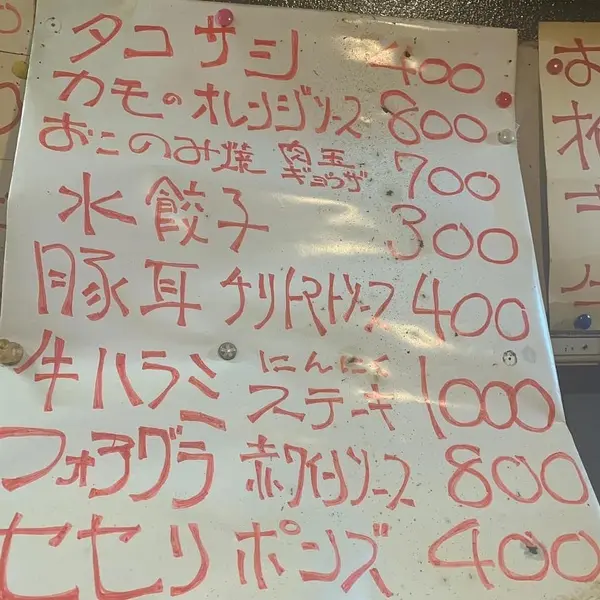 タコサシ 400
カモのオレンジソース 800
おこのみ焼 肉玉 ギョウザ 700
水餃子 300
豚耳 チリトマトソース 400
牛ハラミ にんにく ステーキ 1000
フォアグラ 赤ワインソース 800
セセリ ポンズ 400